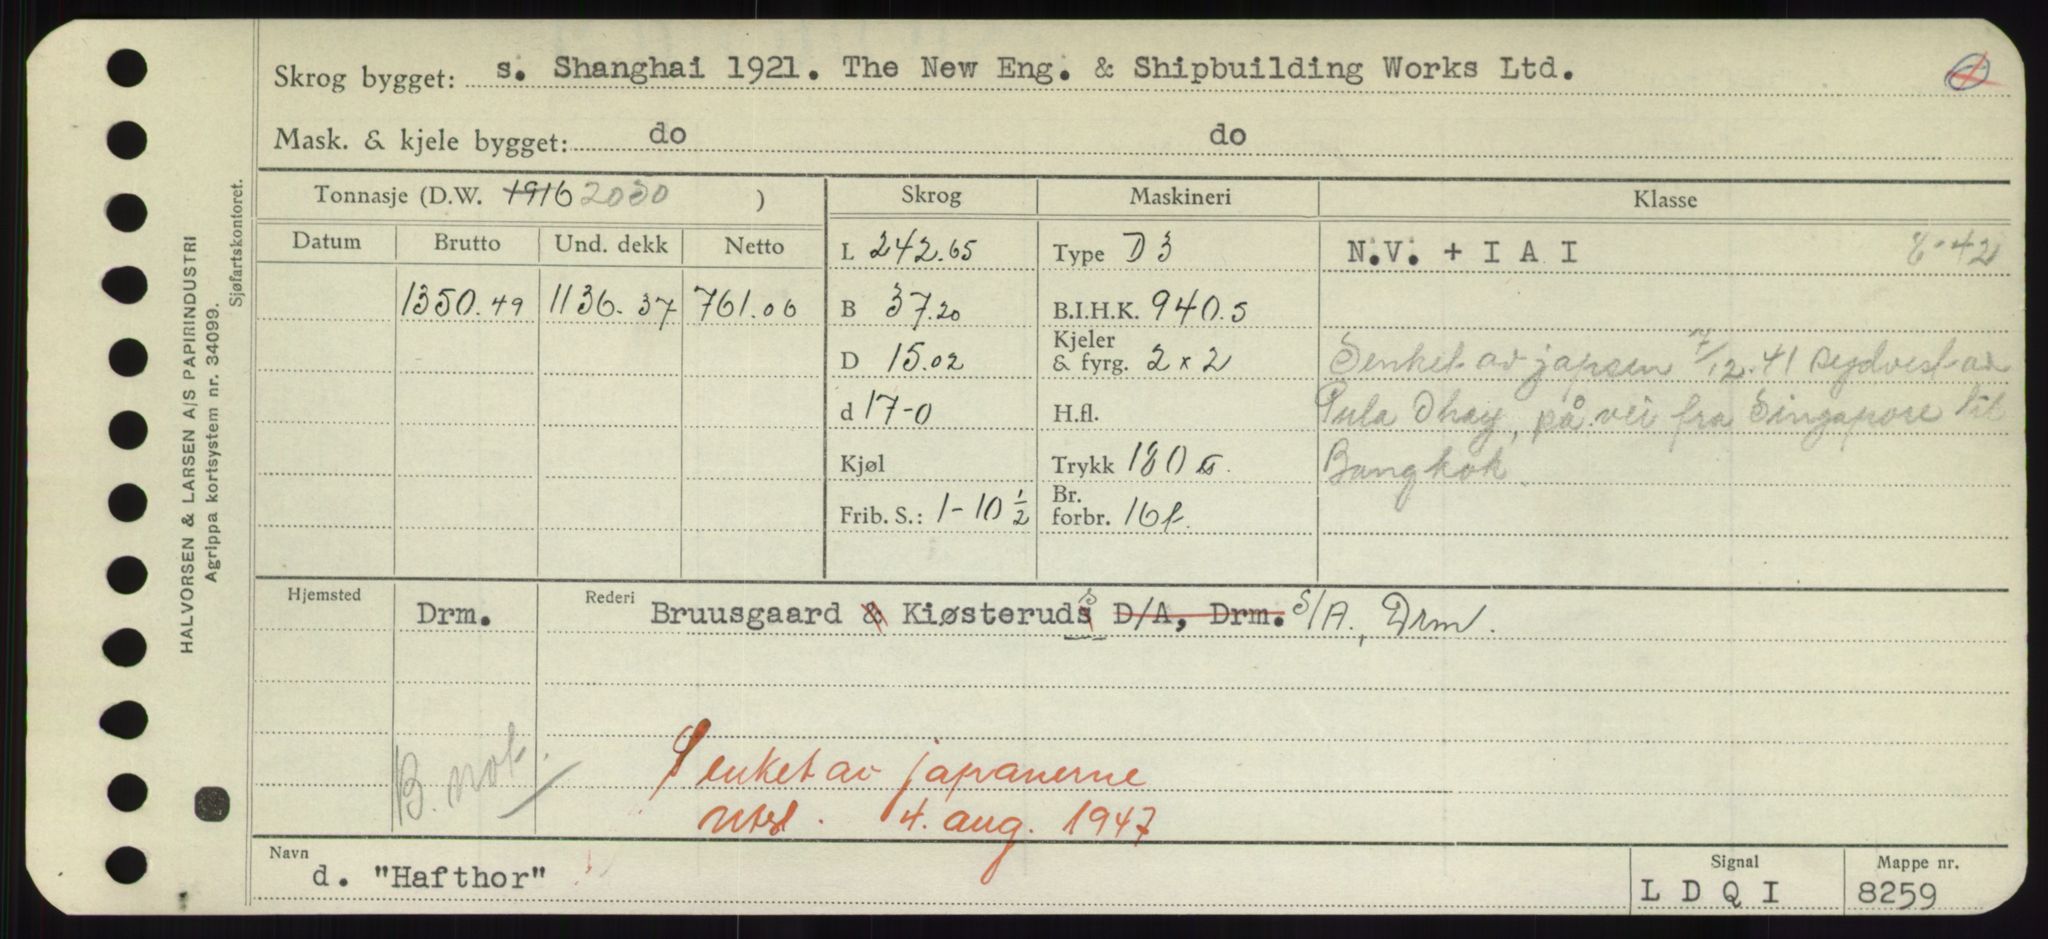 Skrog bygget: s. Shanghai 1921. The New Eng. & Shipbuilding Works Ltd.
Mask. & kjele bygget: do do
Tonnasje (D.W. 1916 2030 ) Skrog Maskineri Klasse
Datum Brutto Und. dekk Netto L 242.65 Type D 3 N.V. + I A I 8-42
1350.49 1136.37 761.06 B 37.20 B.I.H.K. 940.5
D 15.02 Kjeler & fyrg. 2 x 2 Senket av japsen 7/12.41 sydvest av
d 17-0 H.fl. Pula Obay, på vei fra Singapore til
Kjøl Trykk 180 Bangkok.
Frib. S.: 1-10 1/2 Br. forbr. 16t.
Hjemsted Drm. Rederi Bruusgaard & Kiøsteruds D/A, Drm. S/A., Drm.
B. not.
Senket av japanerne
4. aug. 1947
Navn d. "Hafthor" Signal L D Q I Mappe nr. 8259
HALVORSEN & LARSEN A/S PAPIRINDUSTRI
Agrippa kortsystem nr. 34099.
Sjøfartskontoret.